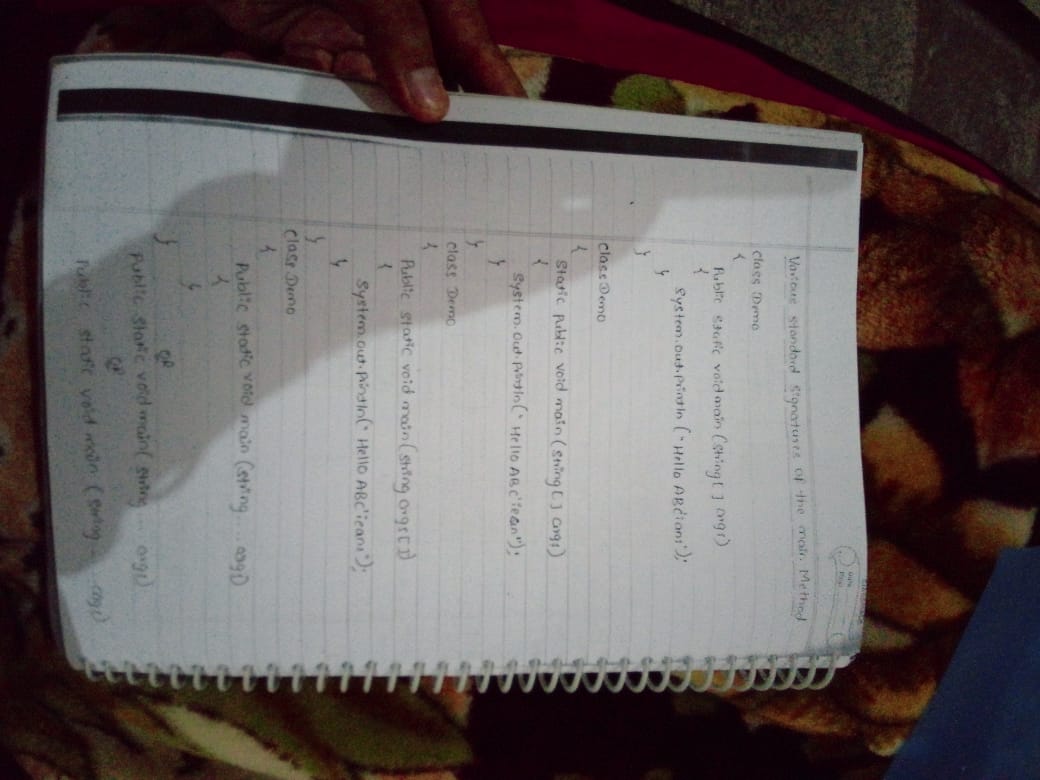 Various standard signatures of the main Method
class Demo
{
Public static void main (string[ ] args)
{
system.out.println ("Hello ABC'ians");
}
}
class Demo
{
static public void main (string[ ] args)
{
system.out.println("Hello ABC'iean");
}
}
class Demo
{
Public static void main (string args[ ])
{
system.out.println("Hello ABC'ieans");
}
}
class Demo
{
Public static void main (string ... args)
{
}
}
OR
Public static void main (string ... args)
OR
Public static void main (string ... args)